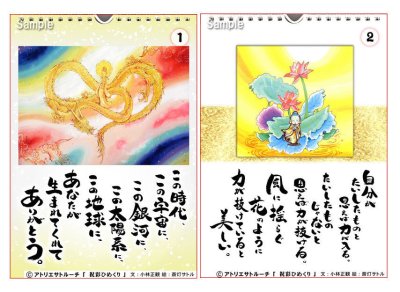 Sample
1
この時代、
この宇宙に、
この銀河に、
この太陽系に、
この地球に、
あなたが
生まれてくれて
ありがとう。
© アトリエサトルーチ「 祝彩ひめくり 」 文:小林正観 絵:斎灯サトル
Sample
2
自分が
たいしたものと
思えば力が入る。
たいしたもの
じゃないと
思えば力が抜ける。
風に揺らぐ
花のように
力が抜けていると
美しい。
© アトリエサトルーチ「 祝彩ひめくり 」 文:小林正観 絵:斎灯サトル